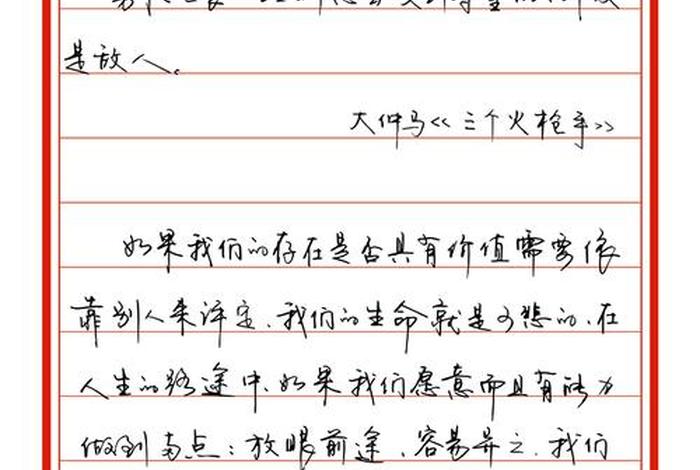 是敌人。
大仲马《三个火枪手》
如果我们的存在是否具有价值需要依
靠别人来评定、我们的生命就是可悲的、在
人生的路途中、如果我们愿意而且有能力
做到两点：放眼前途、容易弃之、我们